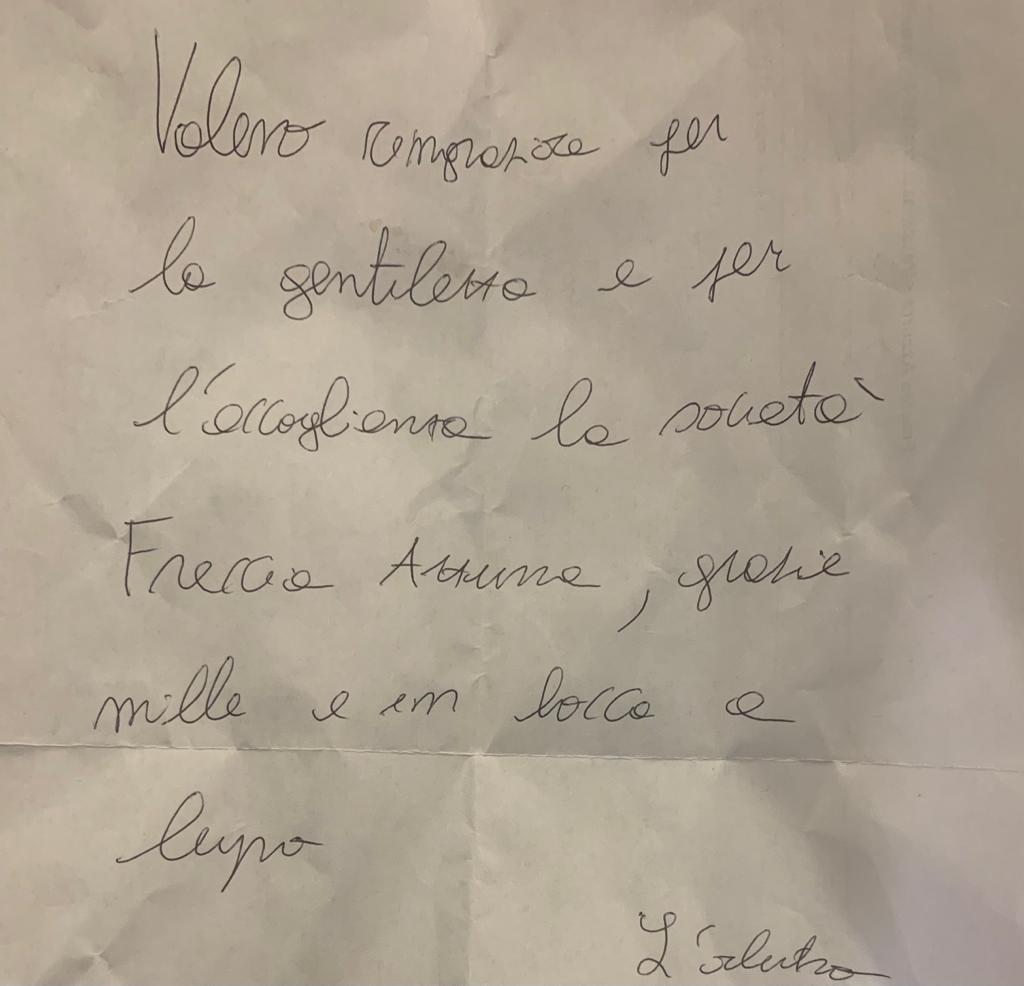 Volevo ringraziare per
la gentilezza e per
l'accoglienza la società
Freccia Azzurra, grazie
mille e in bocca a
lupo
L'arbitro